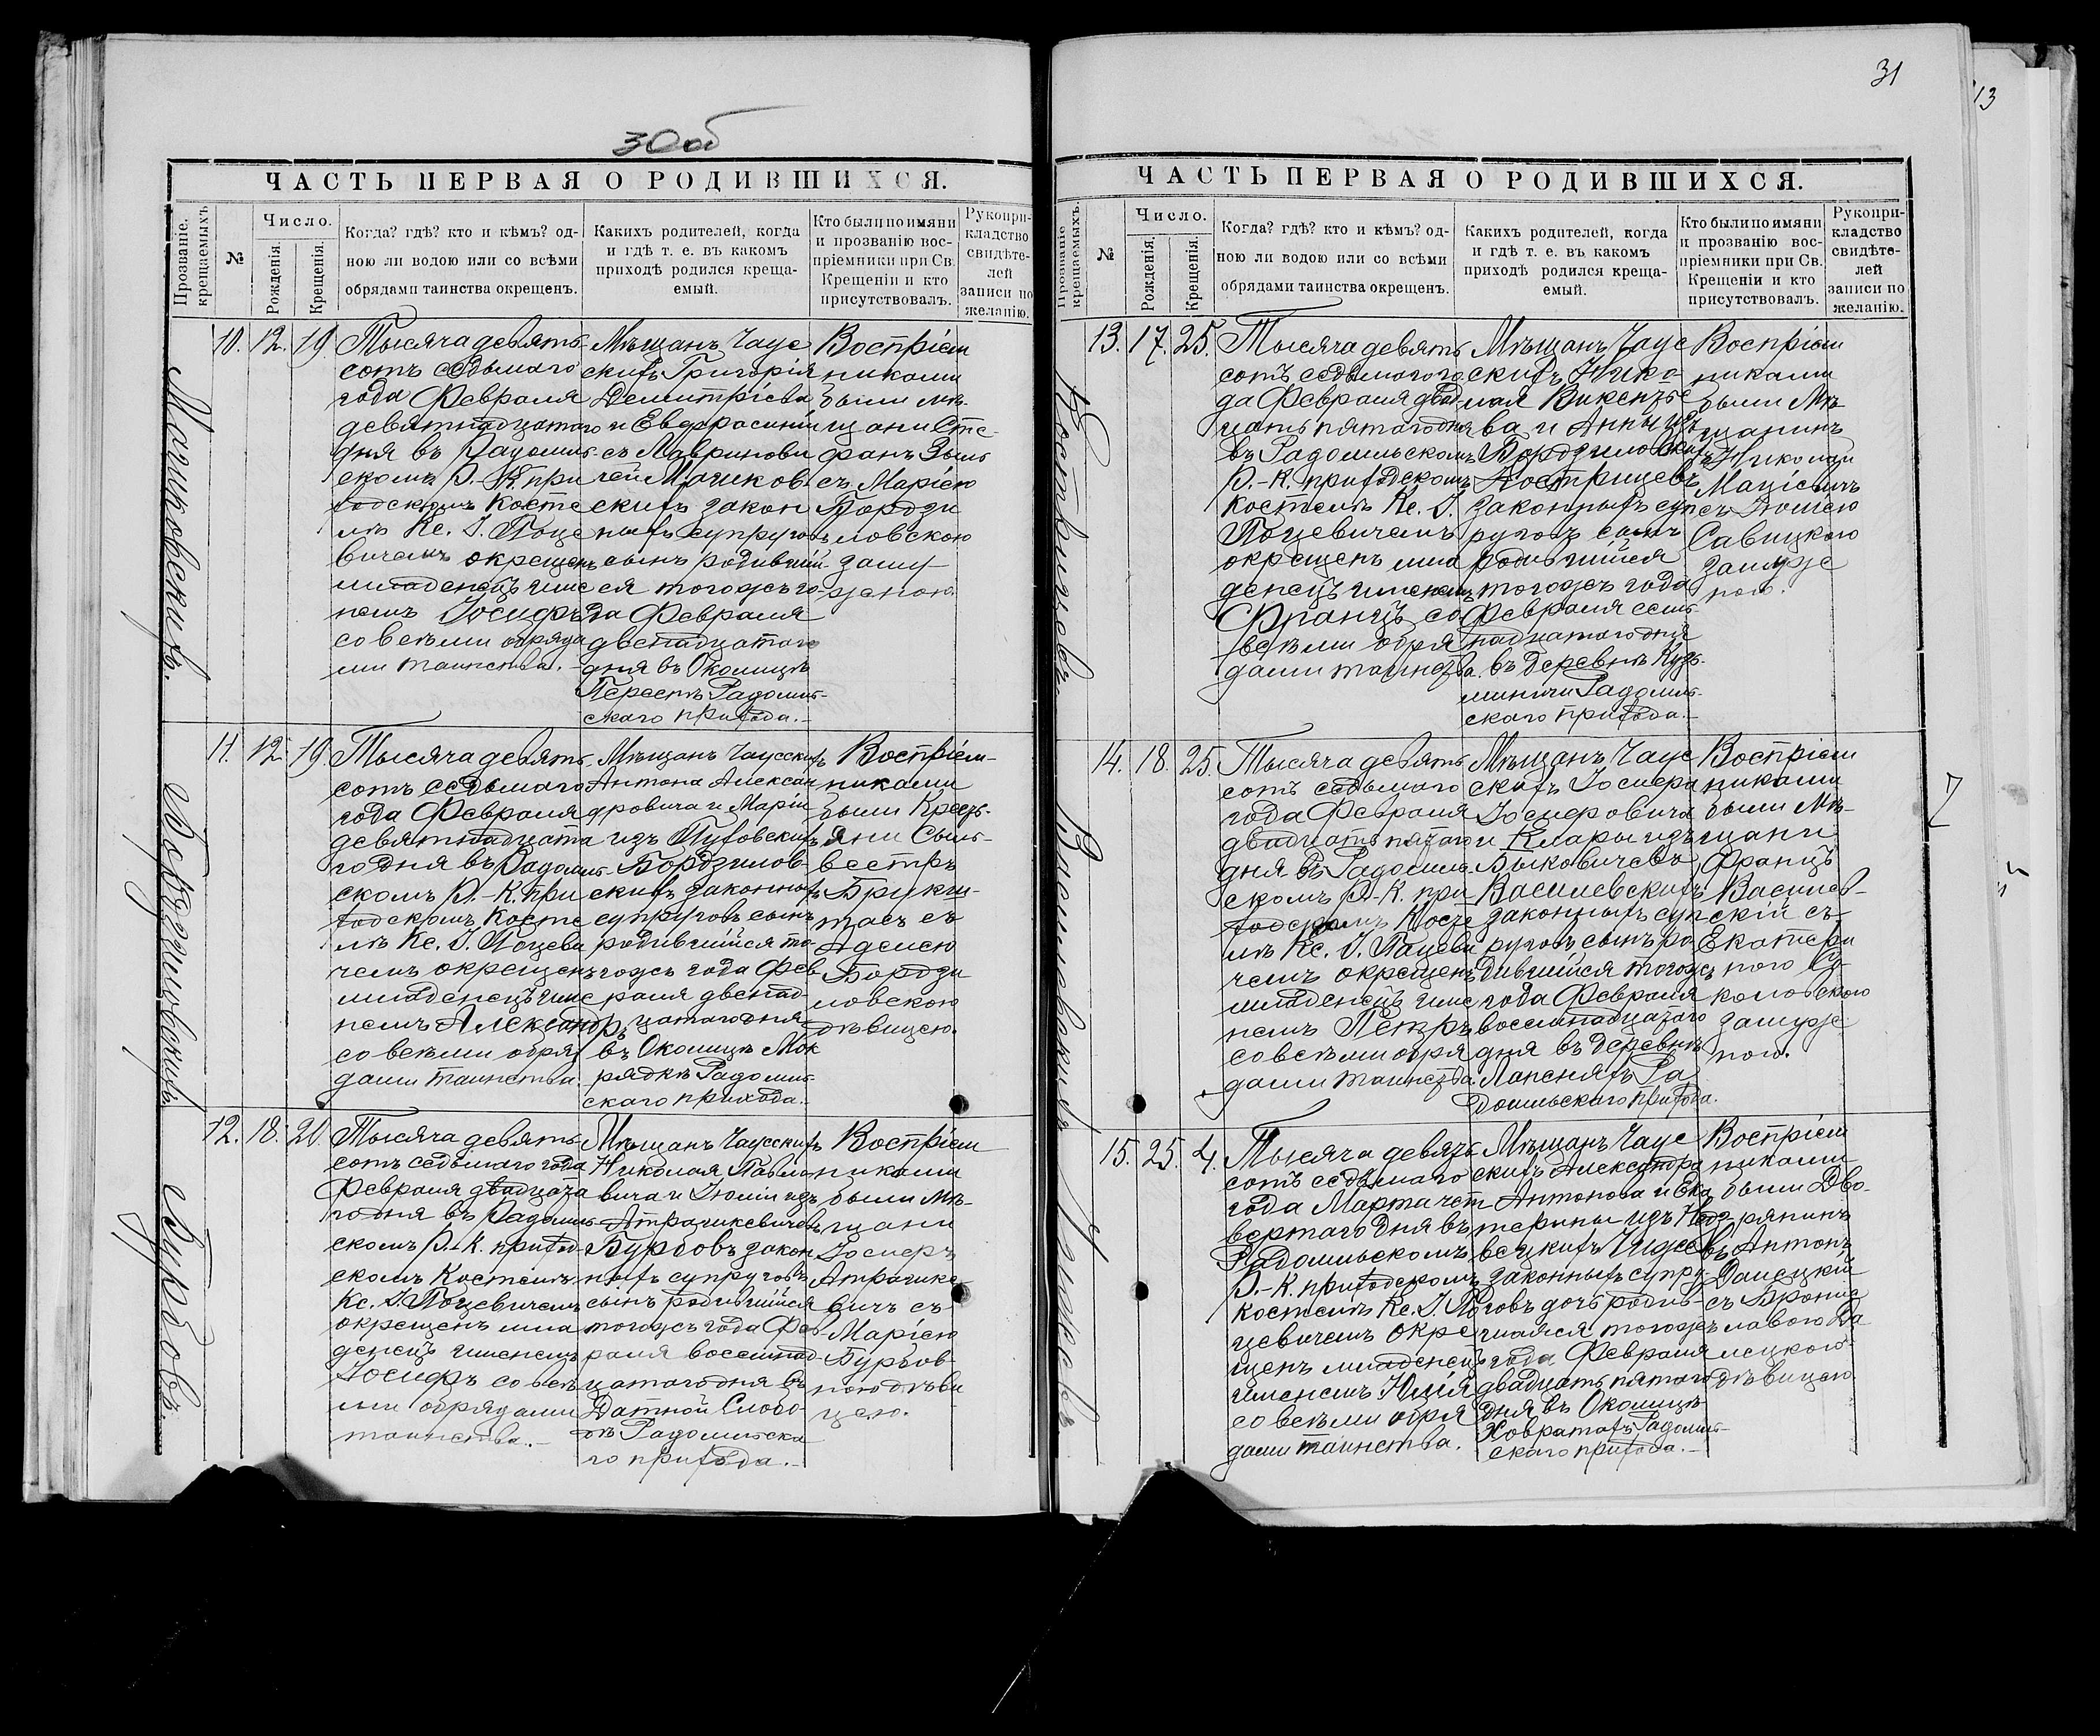 30об
ЧАСТЬ ПЕРВАЯ О РОДИВШИХСЯ.
Прозваніе крещаемыхъ
№
Число.
Рожденія.
Крещенія.
Когда? гдѣ? кто и кѣмъ? од-
ною ли водою или со всѣми
обрядами таинства окрещенъ.
Какихъ родителей, когда
и гдѣ т. е. въ какомъ
приходѣ родился креща-
емый.
Кто были по имяни
и прозванію вос-
пріемники при Св.
Крещеніи и кто
присутствовалъ.
Рукопри-
кладство
свидѣте-
лей
записи по
желанію.
10. 12. 19.
Тысяча девять-
сотъ седьмаго
года Февраля
девятнадцатаго
дня въ Радомль-
скомъ Р.-К. при
ходскомъ Косте
лѣ Кс. І. Поце
вичемъ окрещенъ
младенецъ име
немъ Іосифъ
со всѣми обряда
ми таинства.-
Мѣщанъ Чаус
скихъ Григорія
Демитріева
и Евфросиніи
съ Лавринови
чей Мачиков-
скихъ закон
ныхъ супруговъ
сынъ родивший
ся тогожъ го-
да Февраля
двенадцатаго
дня въ Околицѣ
Пересть Радомль-
скаго прихода.-
Воспріем
никами
были мѣ-
щани Сте-
фанъ
съ Маріею
Бордзи
ловскою
заму-
жною.
11. 12. 19.
Тысяча девять-
сотъ седьмаго
года Февраля
девятнадцата
го дня въ Радомль-
скомъ Р.-К. при
ходскомъ Косте
лѣ Кс. І. Поцеви
чемъ окрещенъ
младенецъ име
немъ Александръ
со всѣми обря
дами таинства.
Мѣщанъ Чаусскихъ
Антона Алексан
дровича и Маріи
изъ Пуховскихъ
Бордзилов-
скихъ законныхъ
супруговъ сынъ
родившийся то-
гожъ года Фев
раля двенад-
цатаго дня
въ Околицѣ Мок
рядкѣ Радомль-
скаго прихода.-
Воспріем-
никами
были Кресть-
яни Сыль-
вестръ
Брукш-
тасъ съ
Аделею
Бордзи
ловскою
дѣвицею.
12. 18. 20.
Тысяча девять-
сотъ седьмаго года
Февраля двадцата
го дня въ Радомль-
скомъ Р.-К. приход-
скомъ Костелѣ
Кс. І. Поцевичемъ
окрещенъ мла
денецъ именемъ
Іосифъ со всѣ
ми обрядами
таинства.-
Мѣщанъ Чаусскихъ
Николая Павло
вича и Юліи изъ
Атрашкевичевъ
Бурбовъ закон
ныхъ супруговъ
сынъ родившийся
тогожъ года Фев-
раля восемнад-
цатаго дня въ
Датной Слобо-
дѣ Радомльска
го прихода.-
Воспріем
никами
были мѣ-
щани
Іосифъ
Атрашке
вичъ съ
Маріею
Бурбов-
ною дѣви
цею.
Мачиковскихъ.
Бордзиловскихъ.
Бурбовъ.
31
13
ЧАСТЬ ПЕРВАЯ О РОДИВШИХСЯ.
Прозваніе крещаемыхъ.
№
Число.
Рожденія.
Крещенія.
Когда? гдѣ? кто и кѣмъ? од-
ною ли водою или со всѣми
обрядами таинства окрещенъ.
Какихъ родителей, когда
и гдѣ т. е. въ какомъ
приходѣ родился креща-
емый.
Кто были по имяни
и прозванію вос-
пріемники при Св.
Крещеніи и кто
присутствовалъ.
Рукопри-
кладство
свидѣте-
лей
записи по
желанію.
13. 17. 25.
Тысяча девять
сотъ седьмаго го
да Февраля двад
цать пятаго дня
въ Радомльскомъ
Р.-К. приходскомъ
Костелѣ Кс. І.
Поцевичемъ
окрещенъ мла
денецъ именемъ
Францъ со
всѣми обря
дами таинства.
Мѣщанъ Чаус
скихъ Нико-
лая Викентье
ва и Анны изъ
Бордзиловскихъ
Кострицевъ
законныхъ суп
руговъ сынъ
родившийся
тогожъ года
Февраля сем-
надцатаго дня
въ деревнѣ Кузь-
миничи Радомль-
скаго прихода.-
Воспріем
никами
были Мѣ
щанинъ
Николай
Маціевичъ
съ Юліею
Савицкою
замуж
ною.
14. 18. 25.
Тысяча девять-
сотъ седьмаго
года Февраля
двадцать пятаго
дня въ Радомль-
скомъ Р.-К. при
ходскомъ Косте
лѣ Кс. І. Поцеви
чемъ окрещенъ
младенецъ име
немъ Петръ
со всѣми обря
дами таинства.
Мѣщанъ Чаус
скихъ Іосифа
Іосифовича
и Клары изъ
Быковичевъ
Василевскихъ
законныхъ суп
руговъ сынъ ро
дившийся тогожъ
года Февраля
восемнадцатаго
дня въ деревнѣ
Лапеняхъ Ра
домльскаго прихода.
Воспріем
никами
были Мѣ-
щани
Францъ
Василев-
скій съ
Екатери
ною Со-
коловскою
замуж
ною.
15. 25. 4.
Тысяча девять
сотъ седьмаго
года Марта чет
вертаго дня въ
Радомльскомъ
Р.-К. приходскомъ
костелѣ Кс. І. По
цевичемъ окре
щенъ младенецъ
именемъ
со всѣми обря
дами таинства.
Мѣщанъ Чаус
скихъ Александра
Антонова и Ека
терины изъ
законныхъ супру-
говъ дочь родив-
шаяся тогожъ
года Февраля
двадцать пятаго
дня въ Околицѣ
Ховратахъ Радомль-
скаго прихода.-
Воспріем
никами
были Дво-
рянинъ
Антонъ
Далецкій
съ Бронис
лавою Да
лецкою
дѣвицею.
Кострицевъ.
Василевскихъ